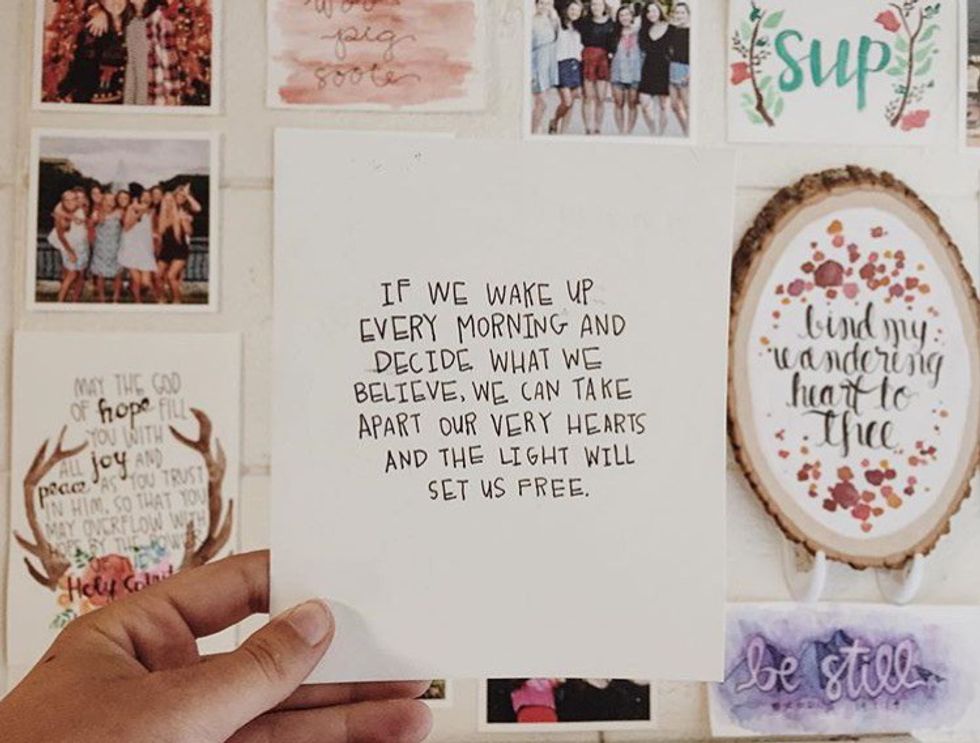 pig
sooie
sup
IF WE WAKE UP
EVERY MORNING AND
DECIDE WHAT WE
BELIEVE, WE CAN TAKE
APART OUR VERY HEARTS
AND THE LIGHT WILL
SET US FREE.
MAY THE GOD
OF hope FILL
YOU WITH
ALL joy AND
peace AS YOU TRUST
IN HIM, SO THAT YOU
MAY OVERFLOW WITH
HOPE BY THE POWER
Holy Spirit
bind my
wandering
heart to
Thee
be still